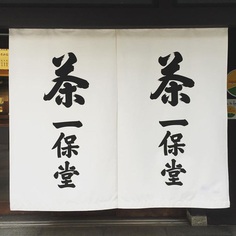 茶 一保堂
茶 一保堂